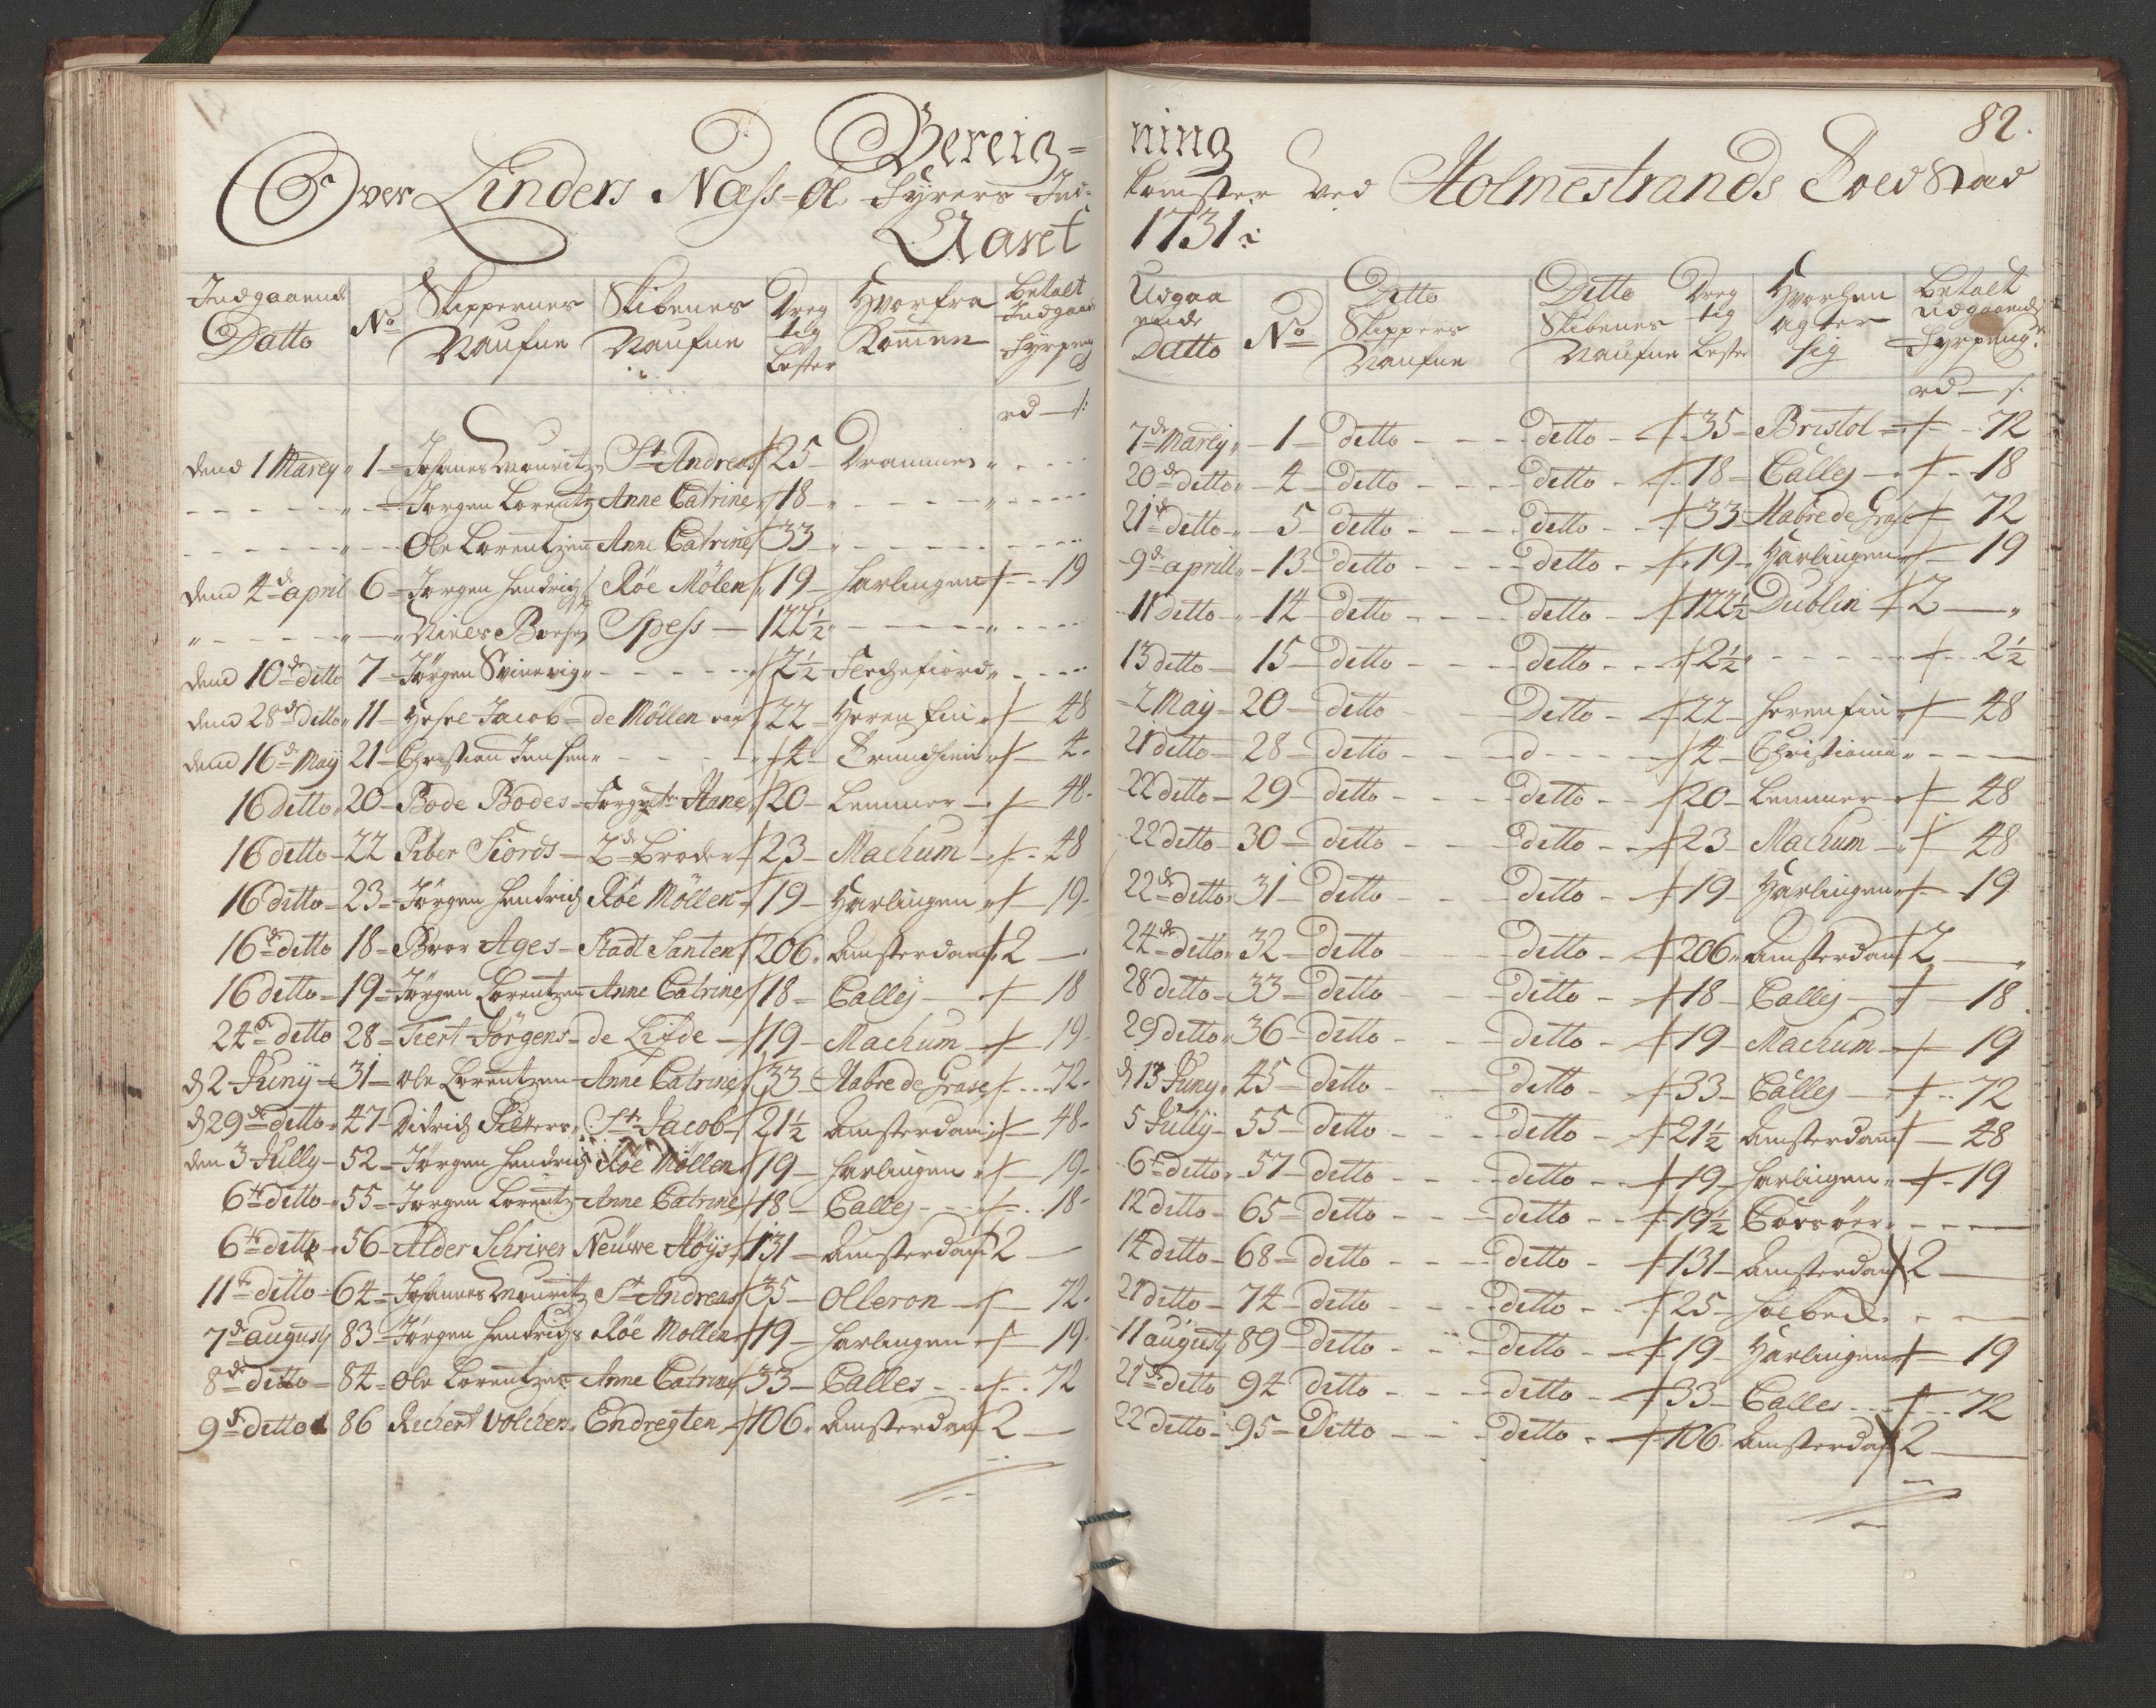 Bereig=
Over Linders Næss-øe Fyrers Ind-
Aaret
Indgaaende Datto
No
Skippernes Naufne
Skibenes Naufne
Dreg tig Lester
Hvorfra Kommen
Betalt Indgaaen Fyrpeng
rd — s:
dend 1 Martij 1 Johanes Mouritz St Andreas 25 Drammen
Jørgen Lorentz Anne Catrine 18
Ole Lorentzen Anne Catrine 33
dend 4de april 6 Jørgen Hendrichs Røe Mölen 19 Harlingen 19
Niels Boese Spess 122½
dend 10de ditto 7 Jørgen Svinevig 2½ Flechefiord
dend 28de ditto 11 Jacob de Möllen 22 48
dend 16de May 21 Christian Jensen 4 Trundhiem 4
16 ditto 20 Bode Bodes Hane 20 Lemmer 48
16 ditto 22 Piber Siords 2de Broder 23 Machum 48
16 ditto 23 Jørgen Hendrichs Røe Möllen 19 Harlingen 19
16de ditto 18 Broer Ages Stadt Santen 206 Amsterdam 2
16 ditto 19 Jørgen Lorentzen Anne Catrine 18 Callej 18
24de ditto 28 Tiert Jörgens de Lifde 19 Machum 19
d 2 Junij 31 Ole Lorentzen Anne Catrine 33 Habre de Grase 72
d 29de ditto 47 Didrich Pitters St Jacob 21½ Amsterdam 48
den 3 Jullij 52 Jørgen Hendrichs Røe Möllen 19 Harlingen 19
6te ditto 55 Jørgen Lorentz Anne Catrine 18 Callej 18
6te ditto 56 Alder Schriver Neuwe Höys 131 Amsterdam 2
11te ditto 64 Johannes Mouritz St Andreas 35 Olleron 72
7de augusty 83 Jørgen Hendrichs Røe Mollen 19 Harlingen 19
8de ditto 84 Ole Lorentzen Anne Catrine 33 Calles 72
9de ditto 86 Richert Volchers Endregten 106 Amsterdam 2
82.
ning
komster ved Holmestrands Told Stad
1731:
Udgaa ende Datto
No
Ditto Skippers Naufne
Ditto Skibenes Naufne
Dreg tig Lester
Hvorhen agter sig
Betalt udgaaende Fyrpeng.
rd — s.
7de Martij 1 ditto ditto 35 Bristol 72
20de ditto 4 ditto ditto 18 Callej 18
21de ditto 5 ditto ditto 33 Habre de Grase 72
9de aprill 13 ditto ditto 19 Harlingen 19
11 ditto 14 ditto ditto 122½ Dublin 2
13 ditto 15 ditto ditto 2½ 2½
2 May 20 ditto Ditto 22 48
21 ditto 28 ditto d 4 Christiania
22 ditto 29 ditto ditto 20 Lemmer 48
22 ditto 30 ditto ditto 23 Machum 48
22de ditto 31 ditto ditto 19 Harlingen 19
24de ditto 32 ditto ditto 206 Amsterdam 2
28 ditto 33 ditto ditto 18 Callej 18
29 ditto 36 ditto ditto 19 Machum 19
d 13 Juny 45 ditto ditto 33 Callej 72
5 Jullij 55 ditto ditto 21½ Amsterdam 48
6te ditto 57 ditto ditto 19 Harlingen 19
12 ditto 65 ditto ditto 19½ Corsöer
14 ditto 68 ditto ditto 131 Amsterdam 2
21 ditto 74 ditto ditto 25 Holbech
11 augusty 89 ditto ditto 19 Harlingen 19
21de ditto 94 ditto ditto 33 Calles 72
22 ditto 95 Ditto ditto 106 Amsterdam 2